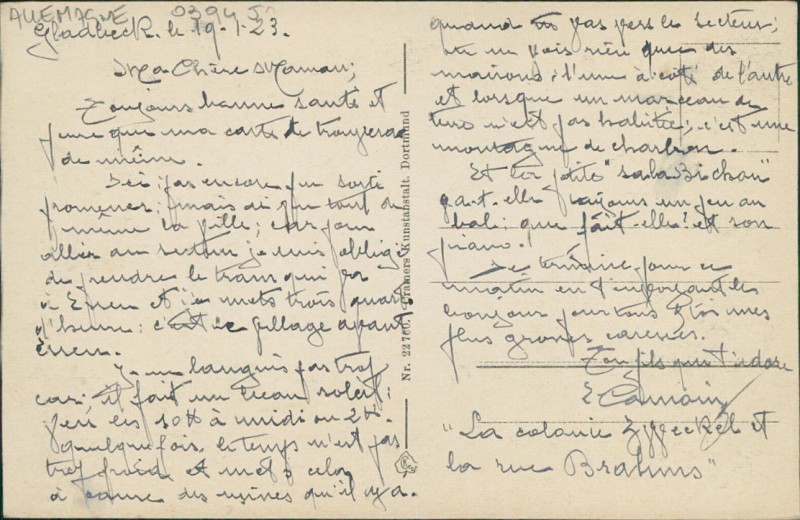 ALLEMAGNE 0394
Gladbeck. le 19-1-23.
Ma Chère Maman;
Toujours bonne santé et
que ma carte te trouvera
de même.
Ici pas encore pu sorti
promener; mais ai pu tout de
même la ville; car pour
aller au secteur je suis obligé
de prendre le tram qui va
à Essen et j'en mets trois quart
d'heure; c'est le village avant
Essen.
J. m languis pas trop
car; il fait un beau soleil;
à midi ou 2h.
quelquefois. le temps n'est pas
trop froid et cela
à cause des usines qu'il y a.
Nr. 22760, Cramers Kunstanstalt, Dortmund
quand tu vas vers le secteur;
tu ne vois rien que des
maisons; l'une à coté de l'autre
et lorsque un morceau de
n'est pas habitée; c'est une
montagne de charbon.
Et ta ptite "sala Bichou"
va-t-elle toujours un peu au
bal; que fait-elle? et son
piano.
Je termine pour ce
matin en t'envoyant les
bonjour pour tous & toi mes
plus grosses caresses.
Ton fils qui t'adore
"La colonie et
la rue Brahms"